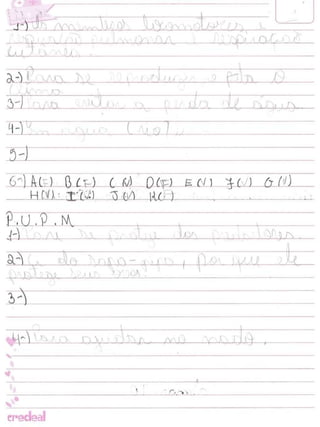 1-) Os membros locomotores e
respiração pulmonar e respiração
cutânea.
2-) Para se reproduzir e pela o
clima
3-) Para evitar a perda de água
4-) Em água (rio)..
5-)
6-) A(F) B(F) C(V) D(F) E(V) F(V) G(V)
H(V) I J(V) K(F)
P.U.P.M
1-) Para se protege dos predadores.
2-) do sapo-pipa, por que ele
protege seus
3-)
4-) Para ajudar no nado.
credeal